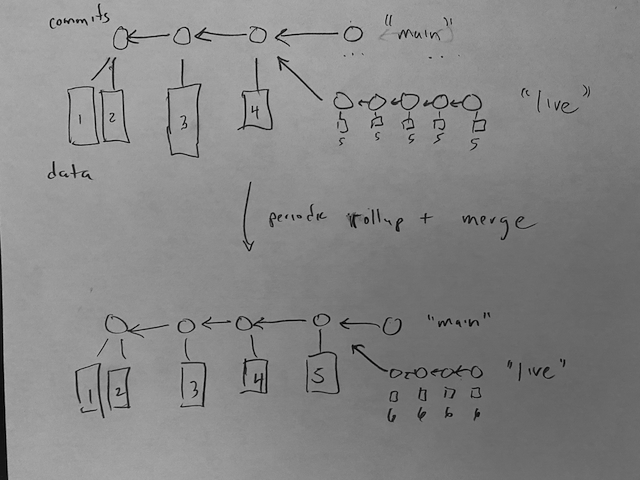 commits
"main"
... ...
1 2 3 4
"live"
5 5 5 5 5
data
periodic rollup + merge
"main"
1 2 3 4 5
"live"
6 6 6 6